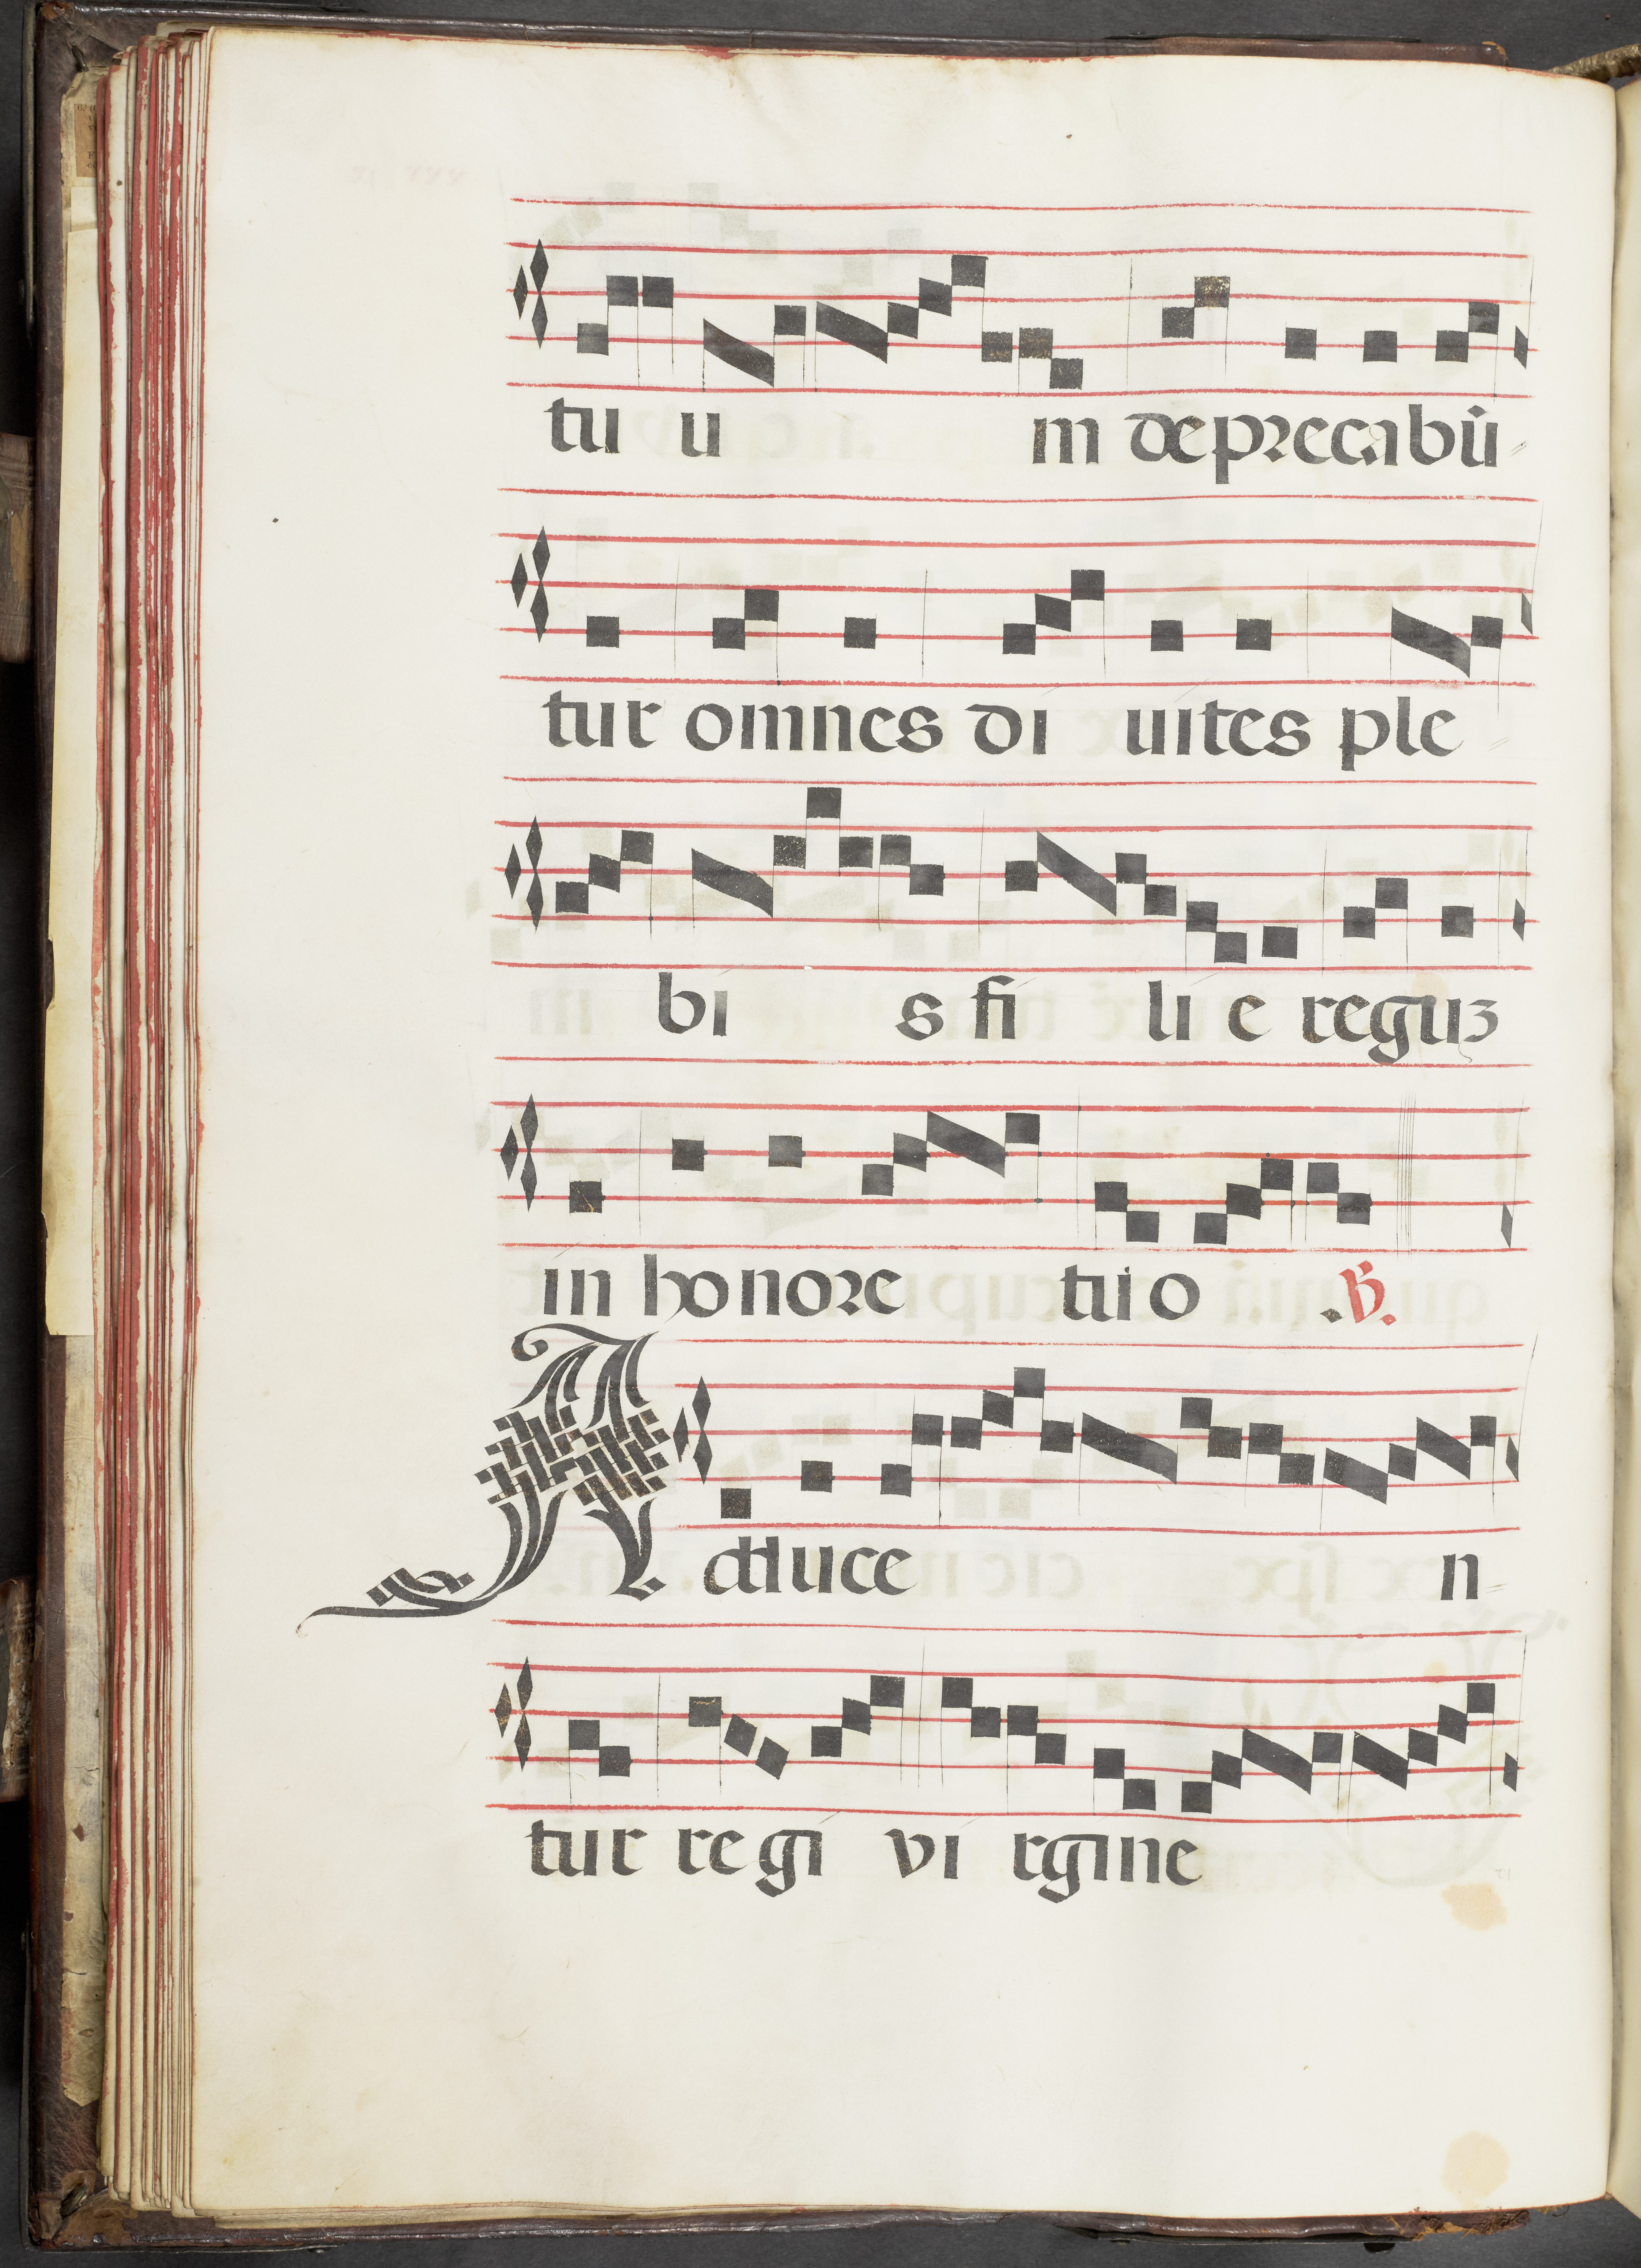 tu u m deprecabū
tur omnes di uites ple
bi s fi li e reguʒ
in honore tui o . ℣.
Adduce n
tur regi vi rgine